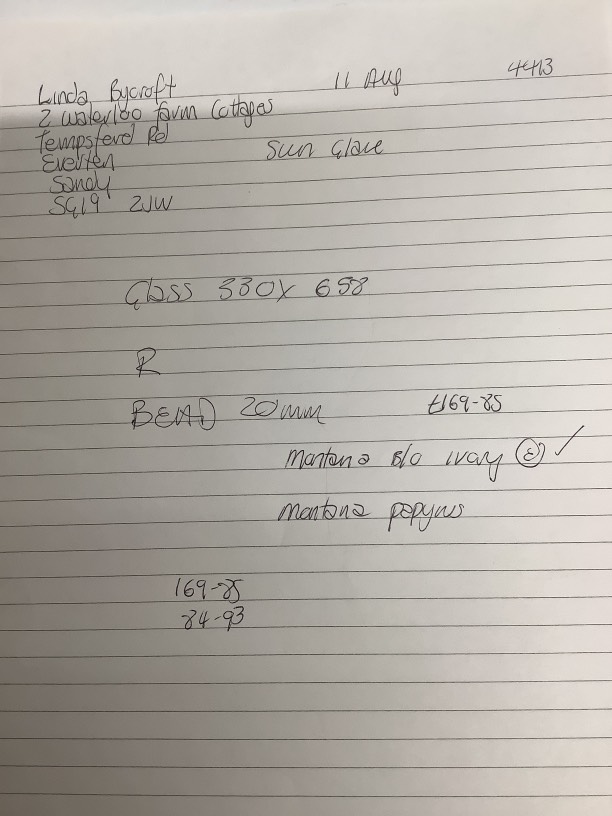 Linda Bycroft
11 Aug
4413
2 Waterloo farm Cottages
Tempsford Rd
Everton
Sun Glare
Sandy
SG19 2JW
Glass 330 X 658
R
BEAD 20mm
£169-85
Montana B/O ivory
Montana papyrus
169-85
84-93